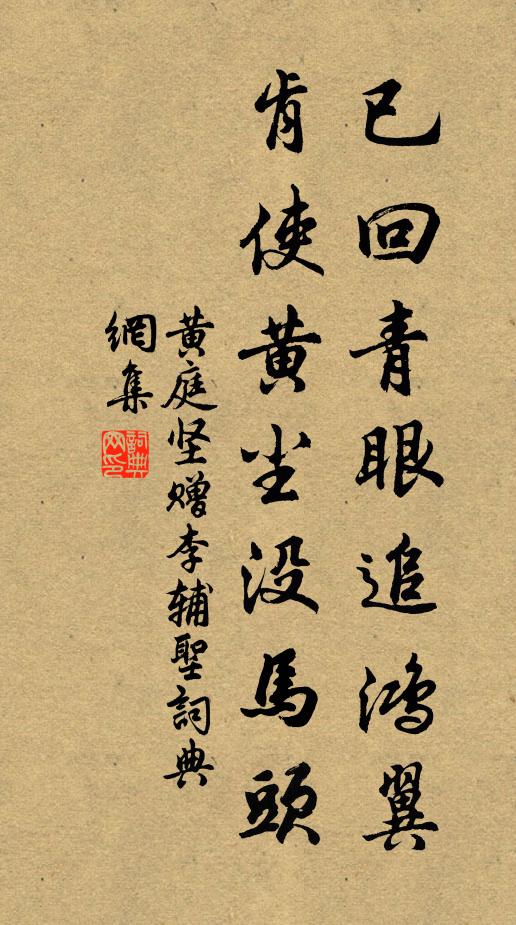 已回青眼追鸿翼
肯使黄尘没馬頭
黄庭坚赠李辅聖詞典
網集
詞典
网印